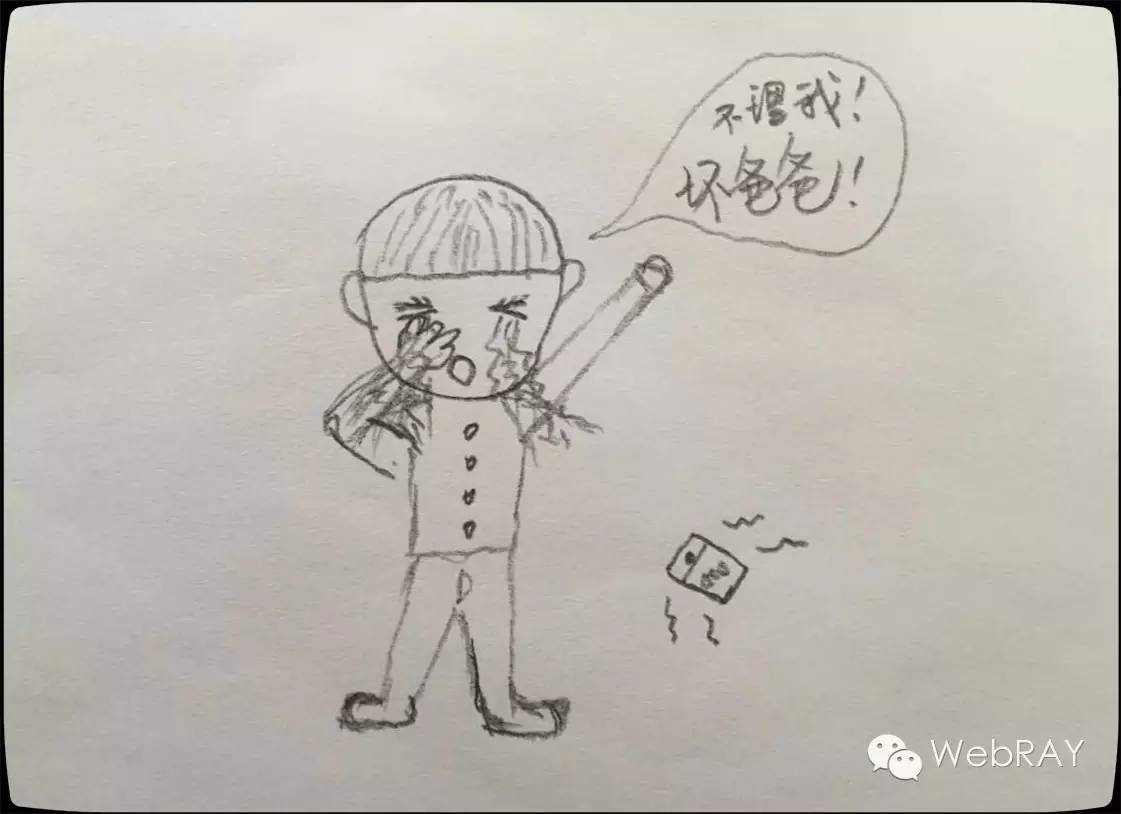 不理我！
坏爸爸！！
WebRAY